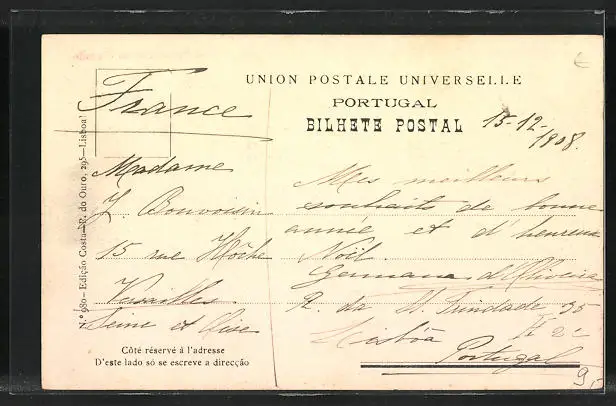 UNION POSTALE UNIVERSELLE
PORTUGAL
BILHETE POSTAL
15-12-1908.
France
Madame
J. Bouvoisin
15 rue Hoche
Versailles
Seine et Oise
Côté réservé à l'adresse
D'este lado só se escreve a direcção
Mes meilleurs
souhaits de bonne
année et d'heureux
Noël.
Germana d'Oliveira
R. da St. Trindade 35
Lisbôa
Portugal
Nº 980—Edição Costa—R. do Ouro, 295—Lisboa
9,-